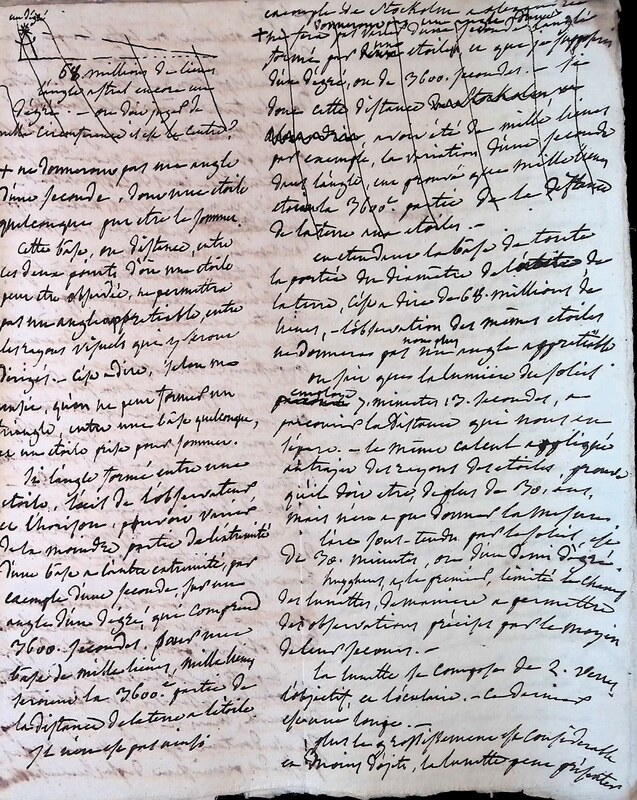 un degré
68 millions de lieues
l'angle seroit encore un
degré. — on doit juger de
+ ne donnerons pas un angle
d'une seconde, dont une etoile
quelconque peut etre le sommet.
Cette base, ou distance, entre
les deux points d'où une etoile
peut etre observée, ne permettra
pas un angle appretiable, entre
les rayons visuels que y seront
dirigés. — c'est a dire, selon ma
pensée, qu'on ne peut former un
triangle, entre une base quelconque,
et une etoile prise pour sommet.
— Si l'angle formé entre une
etoile, l'oeil de l'observateur
et l'horison, pouvoit varier
de la moindre partie de l'extremité
d'une base a l'autre extremité, par
exemple d'une seconde, sur un
angle d'un degré, qui comprend
3600. secondes. pour une
base de mille lieues, mille lieues
seroient la 3600e partie de
la distance de la terre a l'etoile
il n'en est pas ainsi
exemple de Stockholm
+ ne donnerons pas un angle
formé par une etoile, ce que je suppose
d'un degré, ou de 3600. secondes. — Si
donc cette distance
avoit été de mille lieues
par exemple, la variation d'une seconde
dans l'angle, eut prouvé que mille lieues
etoient la 3600e partie de la distance
de la terre aux etoiles. —
en etendant la base de toute
la portée du diametre de l'orbite de
la terre, c'est a dire de 68. millions de
lieues, — l'observation des mêmes etoiles
ne donnera pas non plus un angle appretiable
on sait que la lumiere du soleil
employe 7. minutes 13. secondes, a
parcourir la distance que nous en
separe. — le même calcul appliqué
au trajet des rayons des etoiles, prouve
qu'il doit etre de plus de 30. ans,
mais n'en a pu donner la mesure.
l'arc sous-tendu par le soleil, est
de 30. minutes, ou d'un demi degré.
huyghens, a le premier, limité le champ
des lunettes, de maniere a permettre
des observations precises par le moyen
de leur secours. —
la lunette se compose de 2. verres,
l'objectif, et l'oculaire. — Ce dernier
est une loupe. —
plus le grossissement est considerable
et moins d'objets, la lunette peut presenter